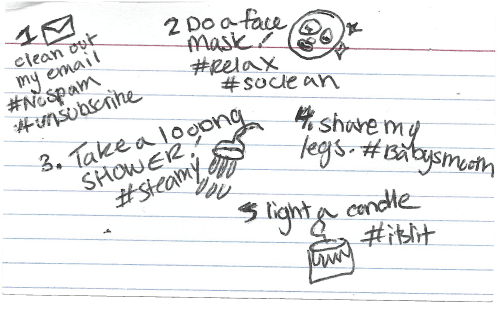 1
clean out
my email
#Nospam
#unsubscribe
2 Do a face
mask!
#relax
#soclean
3. Take a looong
SHOWER!
#steamy
4. share my
legs. #Babysmooth
5 light a candle
#itslit